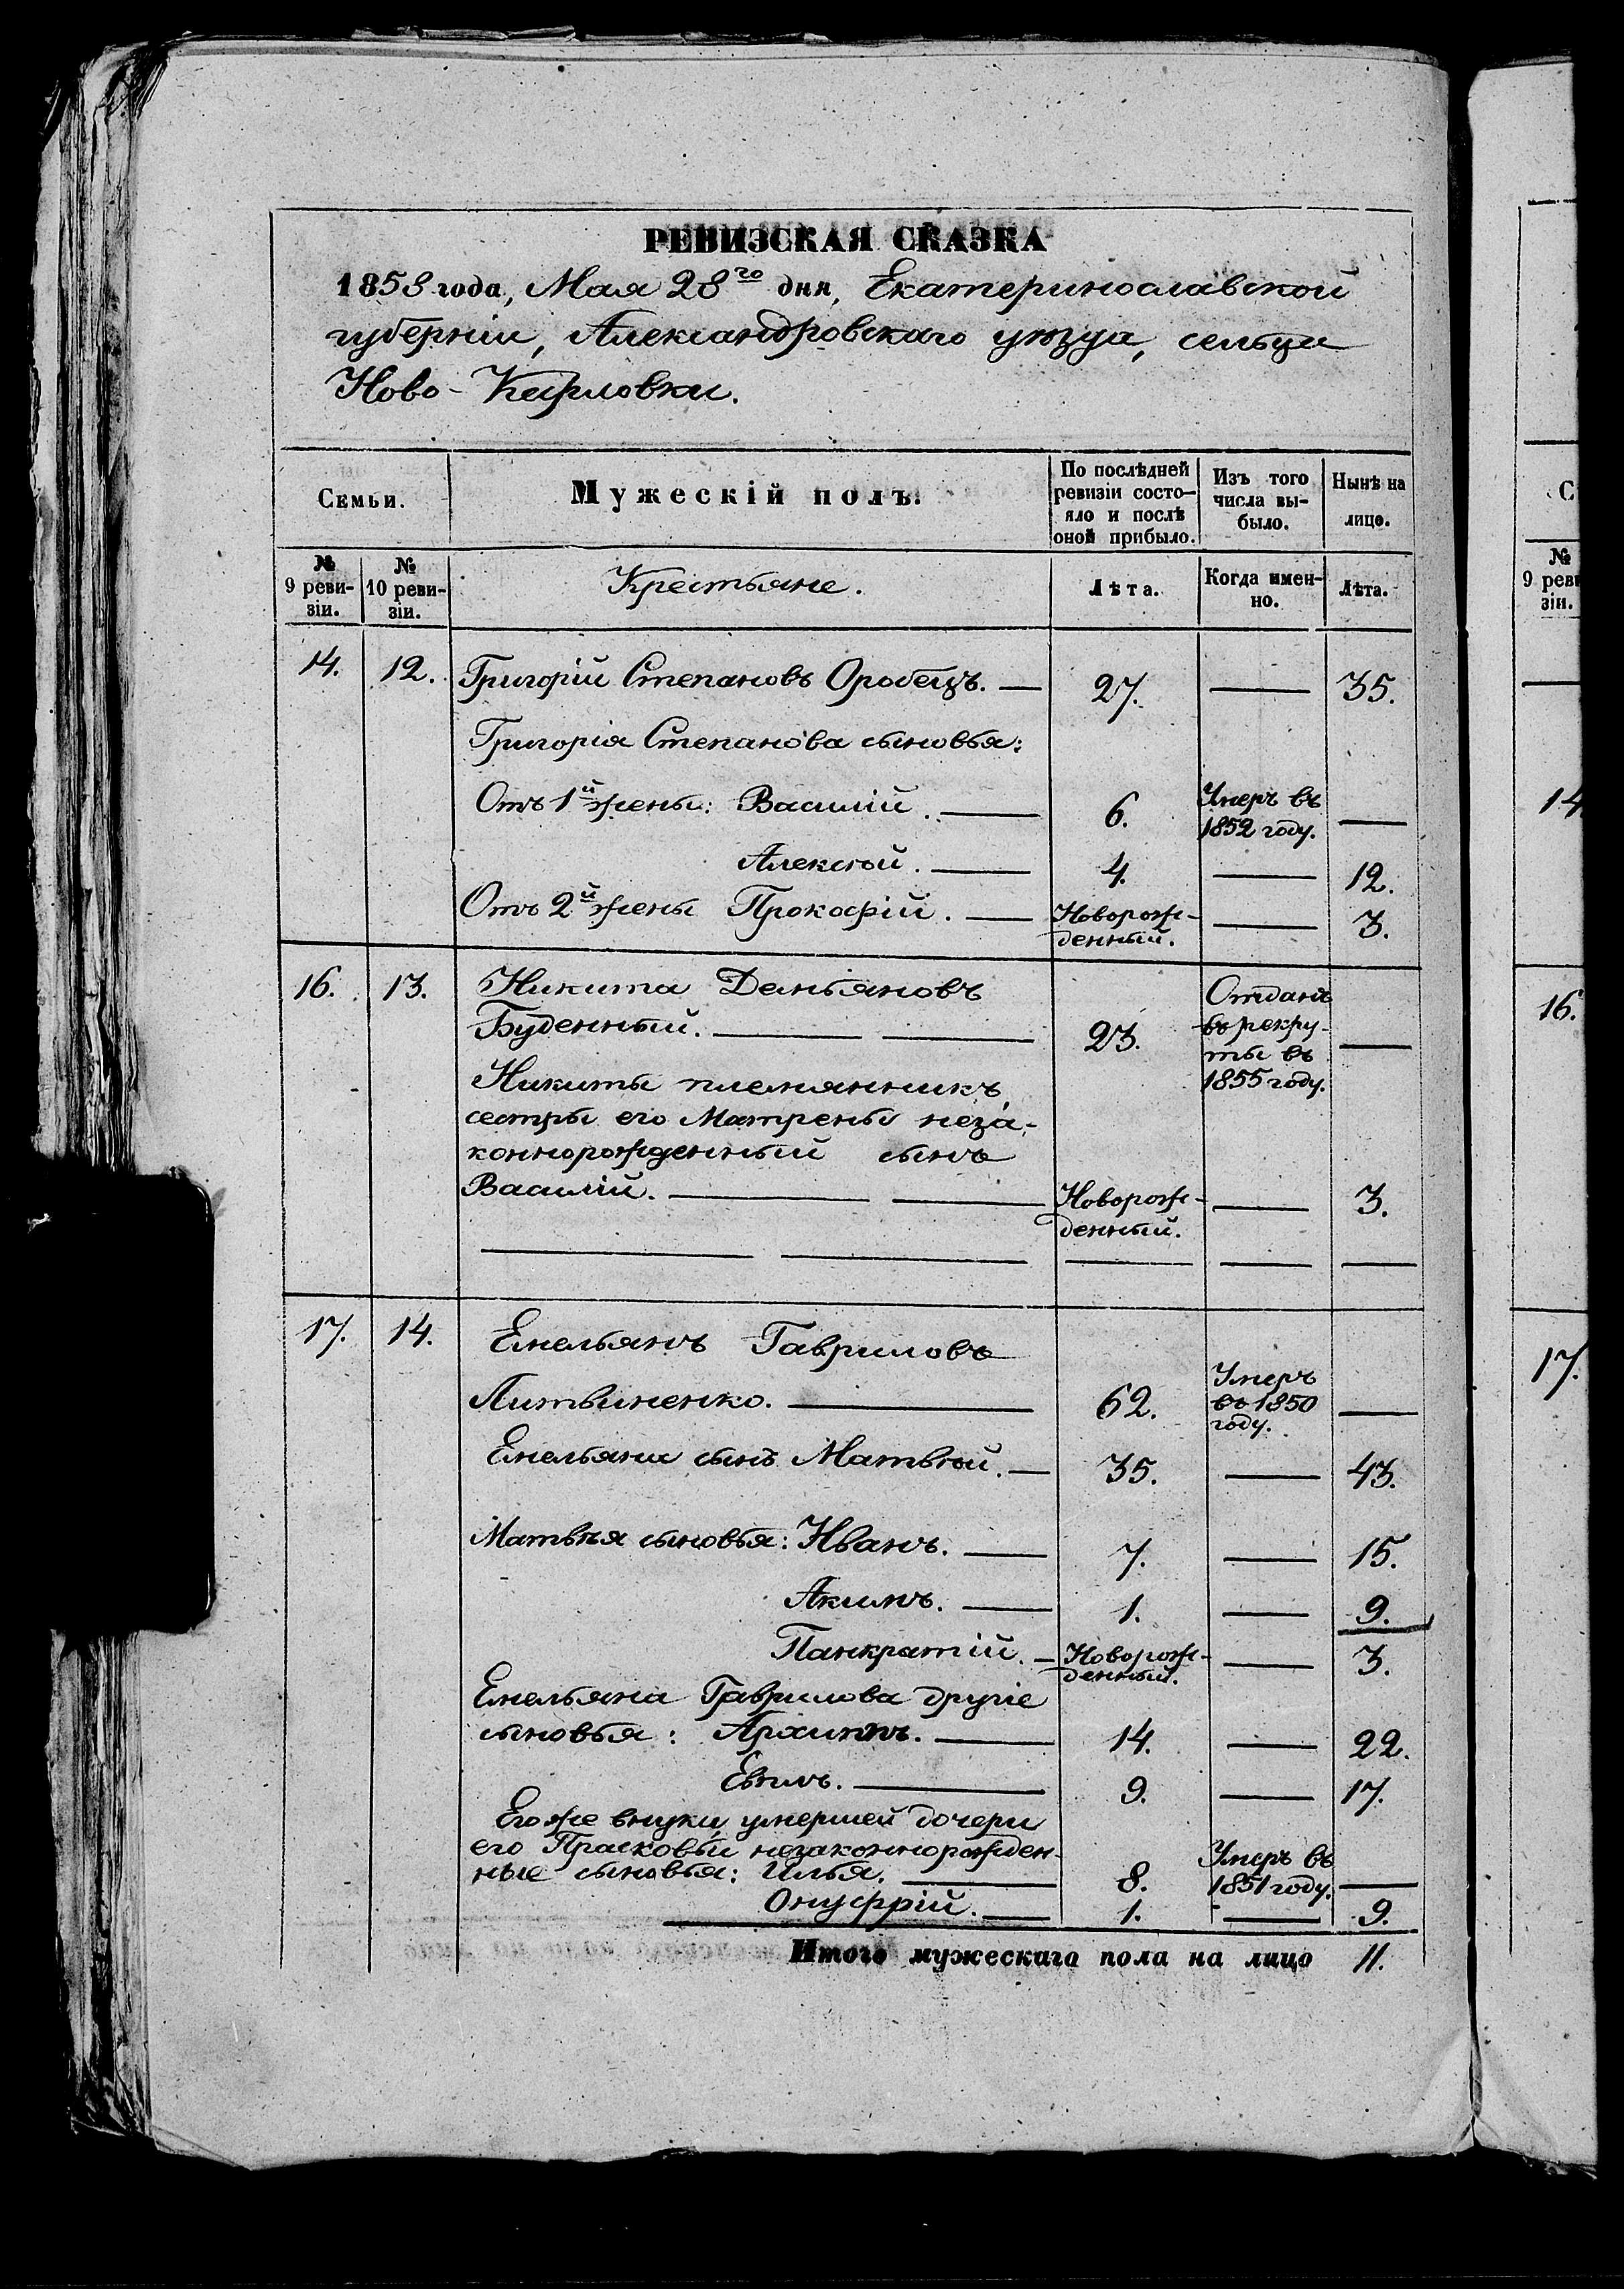 РЕВИЗСКАЯ СКАЗКА
1858 года, Мая 28го дня, Екатеринославской
губерніи, Александровскаго уѣзда, сельца
Ново-Карловки.
Семьи.
Мужескій полъ.
По послѣдней
ревизіи состо-
яло и послѣ
оной прибыло.
Изъ того
числа вы-
было.
Нынѣ на
лицо.
№
9 реви-
зіи.
№
10 реви-
зіи.
Крестьяне.
Лѣта.
Когда имен-
но.
Лѣта.
14. 12. Григорій Степановъ Оробецъ. — 27. — 35.
Григорія Степанова сыновья:
Отъ 1й жены: Василій. — 6. Умеръ въ
1852 году. —
Алексѣй. — 4. — 12.
Отъ 2й жены Прокофій. — Новорож-
денный. — 3.
16. 13. Никита Демьяновъ
Буденный. — 23. Отданъ
въ рекру-
ты въ
1855 году. —
Никиты племянникъ,
сестры его Матрены неза-
коннорожденный сынъ
Василій. — Новорож-
денный. — 3.
17. 14. Емельянъ Гавриловъ
Литвиненко. — 62. Умеръ
въ 1850
году. —
Емельяна сынъ Матвѣй. — 35. — 43.
Матвѣя сыновья: Иванъ. — 7. — 15.
Акимъ. — 1. — 9.
Панкратій. — Новорож-
денный. — 3.
Емельяна Гаврилова другіе
сыновья: Архипъ. — 14. — 22.
Евѳимъ. — 9. — 17.
Егоже внуки, умершей дочери
его Прасковьи незаконнорожден-
ные сыновья: Илья. — 8. Умеръ въ
1851 году. —
Онуфрій. — 1. — 9.
Итого мужескаго пола на лицо 11.
С
№
9 реви
зіи.
14
16.
17.